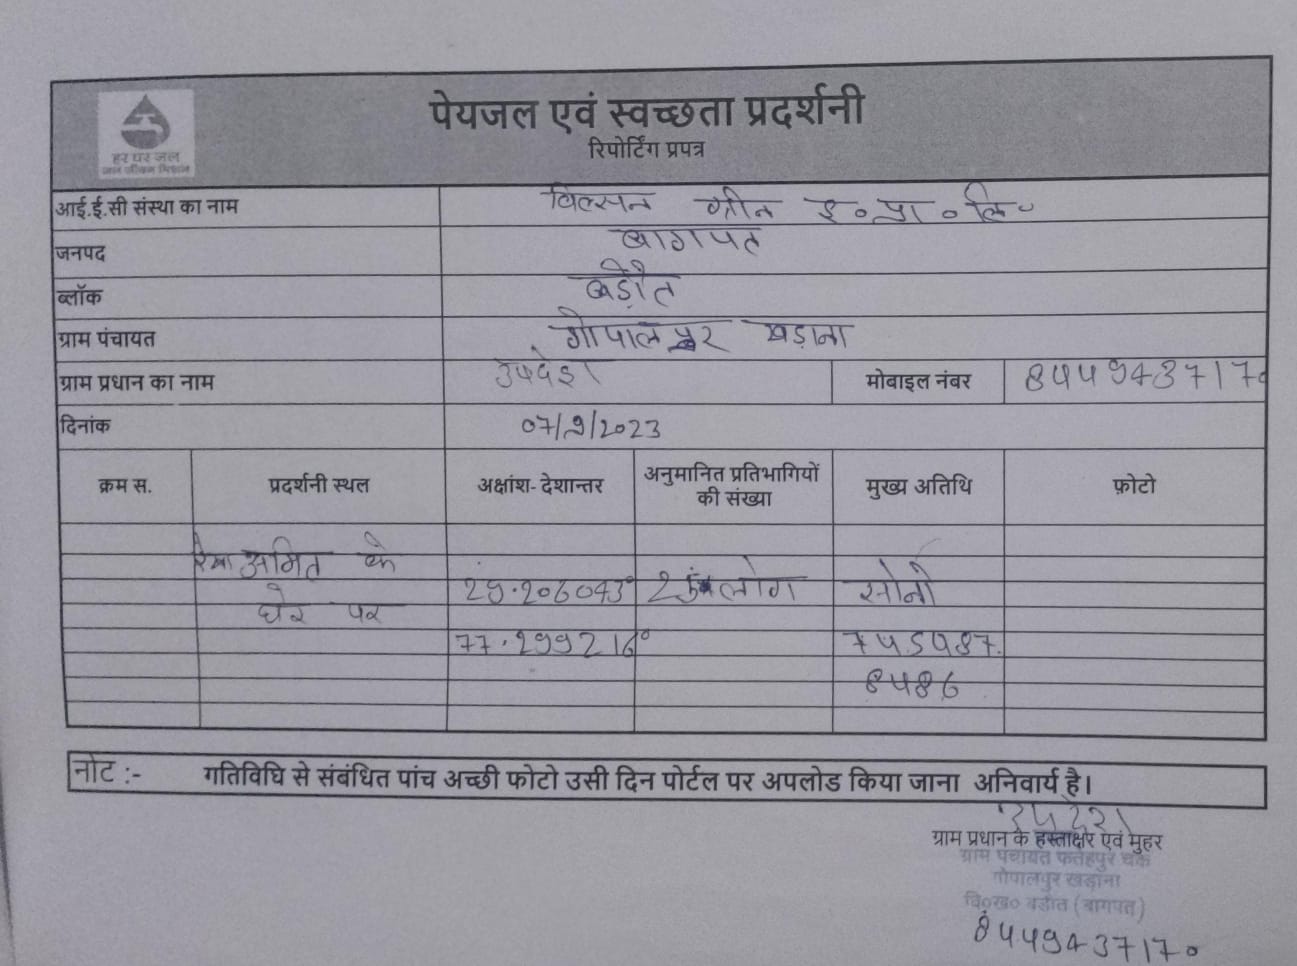 हर घर जल
जल जीवन मिशन
पेयजल एवं स्वच्छता प्रदर्शनी
रिपोर्टिंग प्रपत्र
आई.ई.सी संस्था का नाम विल्सन ग्रीन इ०प्रा०लि०
जनपद बागपत
ब्लॉक बड़ौत
ग्राम पंचायत गोपालपुर खड़ाना
ग्राम प्रधान का नाम उपदेश मोबाइल नंबर 8449437170
दिनांक 07/9/2023
क्रम स. प्रदर्शनी स्थल अक्षांश- देशान्तर अनुमानित प्रतिभागियों की संख्या मुख्य अतिथि फ़ोटो
अमित के
घेर पर 29.206043° लोग सोनी
77.299216° 745487.
8486
नोट :- गतिविधि से संबंधित पांच अच्छी फोटो उसी दिन पोर्टल पर अपलोड किया जाना अनिवार्य है।
उपदेश
ग्राम प्रधान के हस्ताक्षर एवं मुहर
ग्राम पंचायत फतेहपुर चक
गोपालपुर खड़ाना
वि०ख० बड़ौत (बागपत)
8449437170